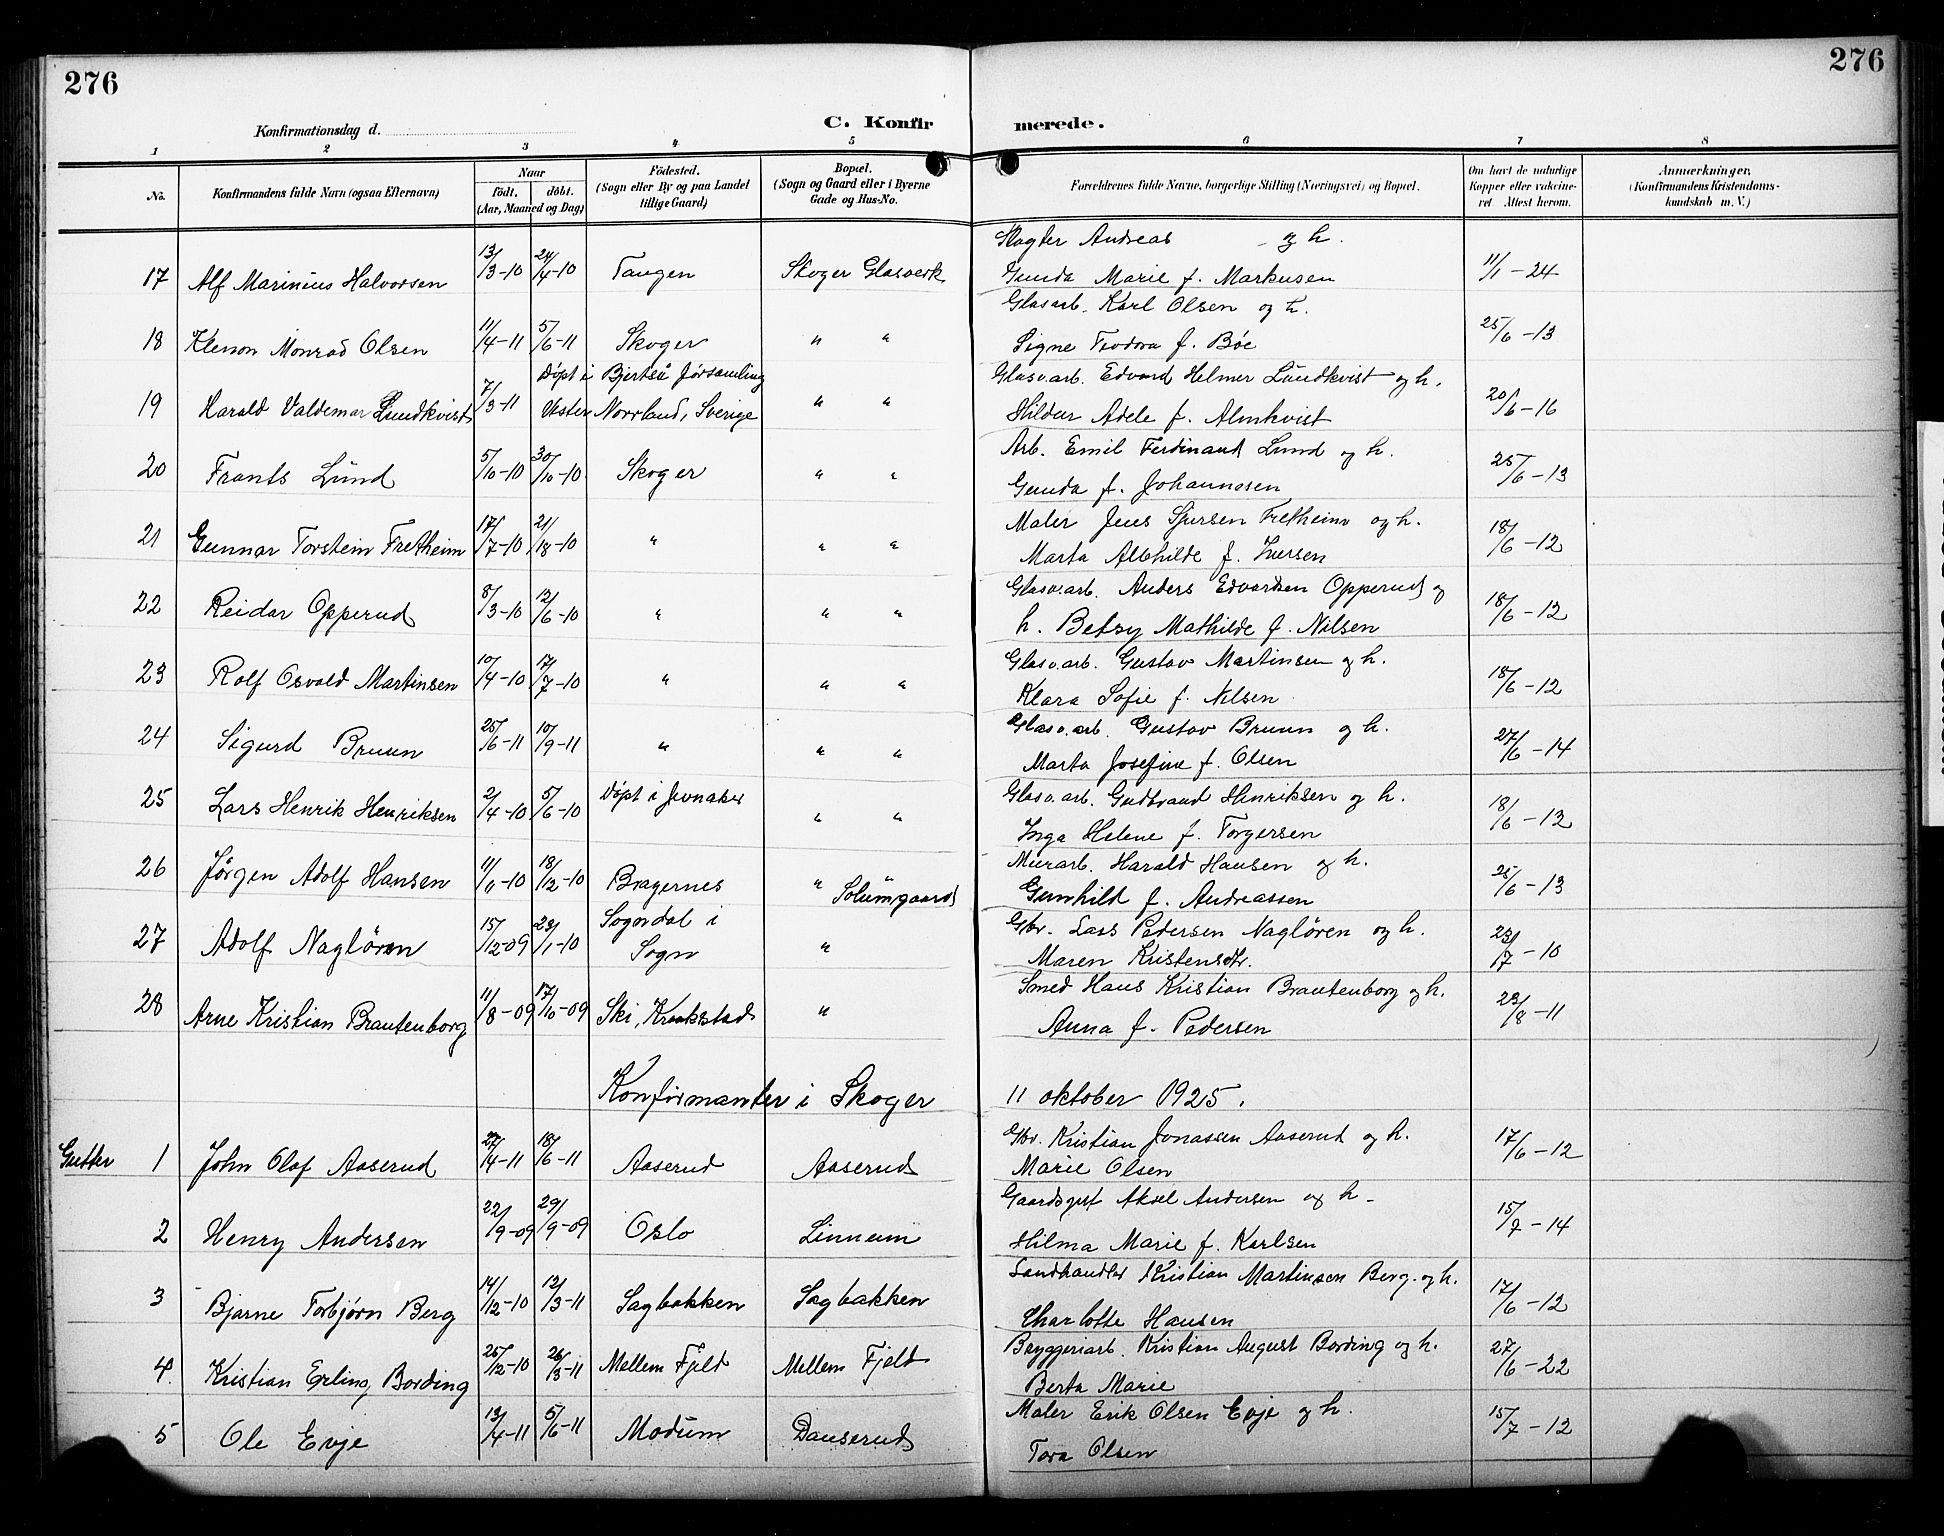 276 276
Konfirmationsdag d. C. Konfir merede.
1 2 3 4 5 6 7 8
No. Konfirmandens fulde Navn (ogsaa Efternavn) Naar født. døbt. (Aar, Maaned og Dag) Fødested. (Sogn eller By og paa Landet tillige Gaard) Bopæl. (Sogn og Gaard eller i Byerne Gade og Hus-No. Forældrenes fulde Navne, borgerlige Stilling (Næringsvei) og Bopæl. Om havt de naturlige Kopper eller vaccineret. Attest herom. Anmærkninger, (Konfirmandens Kristendomskundskab m. V.)
17 Alf Marinius Halvorsen 13/3-10 24/4-10 Tangen Skoger Glasverk Slagter Andreas og h. Gunda Marie f. Markusen 11/1-24
18 Klenon Monrad Olsen 11/4-11 5/6-11 Skoger " " Glasarb. Karl Olsen og h. Signe Teodora f. Bøe 25/6-13
19 Harald Valdemar Lundkvist 7/3-11 Døpt i Bjertrå Førsamling Vester Norrland, Sverige " " Glasv.arb. Edvard Helmer Lundkvist og h. Hildur Adele f. Almkvist 20/6-16
20 Frants Lund 5/10-10 30/10-10 Skoger " " Arb. Emil Ferdinand Lund og h. Gunda f. Johannesen 25/6-13
21 Gunnar Torstein Fretheim 17/7-10 21/18-10 " " " Maler Jens Sjursen Fretheim og h. Marta Alvhilde f. Iversen 18/6-12
22 Reidar Opperud 8/3-10 12/6-10 " " " Glasv.arb. Anders Edvardsen Opperud og h. Betsy Mathilde f. Nilsen 18/6-12
23 Rolf Osvald Martinsen 10/4-10 17/7-10 " " " Glasv.arb. Gustav Martinsen og h. Klara Sofie f. Nilsen 18/6-12
24 Sigurd Bruun 25/6-11 10/9-11 " " " Glasv.arb. Gustav Bruun og h. Marta Josefine f. Olsen 27/6-14
25 Lars Henrik Henriksen 2/4-10 5/6-10 Døpt i Jevnaker " " Glasv.arb. Gudbrand Henriksen og h. Inga Helene f. Torgersen 18/6-12
26 Jørgen Adolf Hansen 11/6-10 18/12-10 Bragernes " Solumgaard Murarb. Harald Hansen og h. Gunhild f. Andreassen 25/6-13
27 Adolf Nagløren 15/12-09 23/1-10 Sogndal i Sogn " Gbr. Lars Pedersen Nagløren og h. Maren Kristensdtr. 23/7-10
28 Arne Kristian Brautenborg 11/8-09 17/10-09 Ski, Kraakstad " Smed Hans Kristian Brautenborg og h. Anna f. Pedersen 23/8-11
Konfirmanter i Skoger 11 oktober 1925.
Gutter 1 John Olaf Aaserud 27/4-11 18/6-11 Aaserud Aaserud Gbr. Kristian Jonassen Aaserud og h. Marie Olsen 17/6-12
2 Henry Andersen 22/9-09 29/9-09 Oslo Linnum Gaardsgut Aksel Andersen og h. Hilma Marie f. Karlsen 15/7-14
3 Bjarne Torbjørn Berg 14/12-10 12/3-11 Sagbakken Sagbakken Landhandler Kristian Martinsen Berg. og h. Charlotte Hansen 17/6-12
4. Kristian Erling Bording 25/12-10 26/3-11 Mellem Fjeld Mellem Fjeld Bryggeriarb. Kristian August Bording og h. Berta Marie 27/6-22
5 Ole Evje 13/4-11 5/6-11 Modum Danserud Maler Erik Olsen Evje og h. Tora Olsen 15/7-12